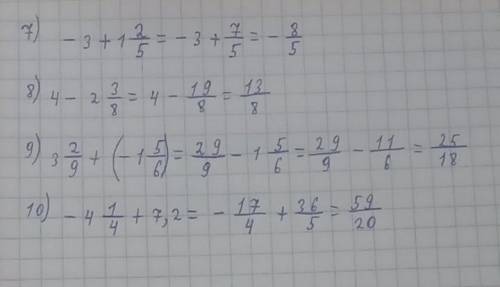 7) -3 + 1 2/5 = -3 + 7/5 = - 8/5
8) 4 - 2 3/8 = 4 - 19/8 = 13/8
9) 3 2/9 + (-1 5/6) = 29/9 - 1 5/6 = 29/9 - 11/6 = 25/18
10) -4 1/4 + 7,2 = - 17/4 + 36/5 = 59/20